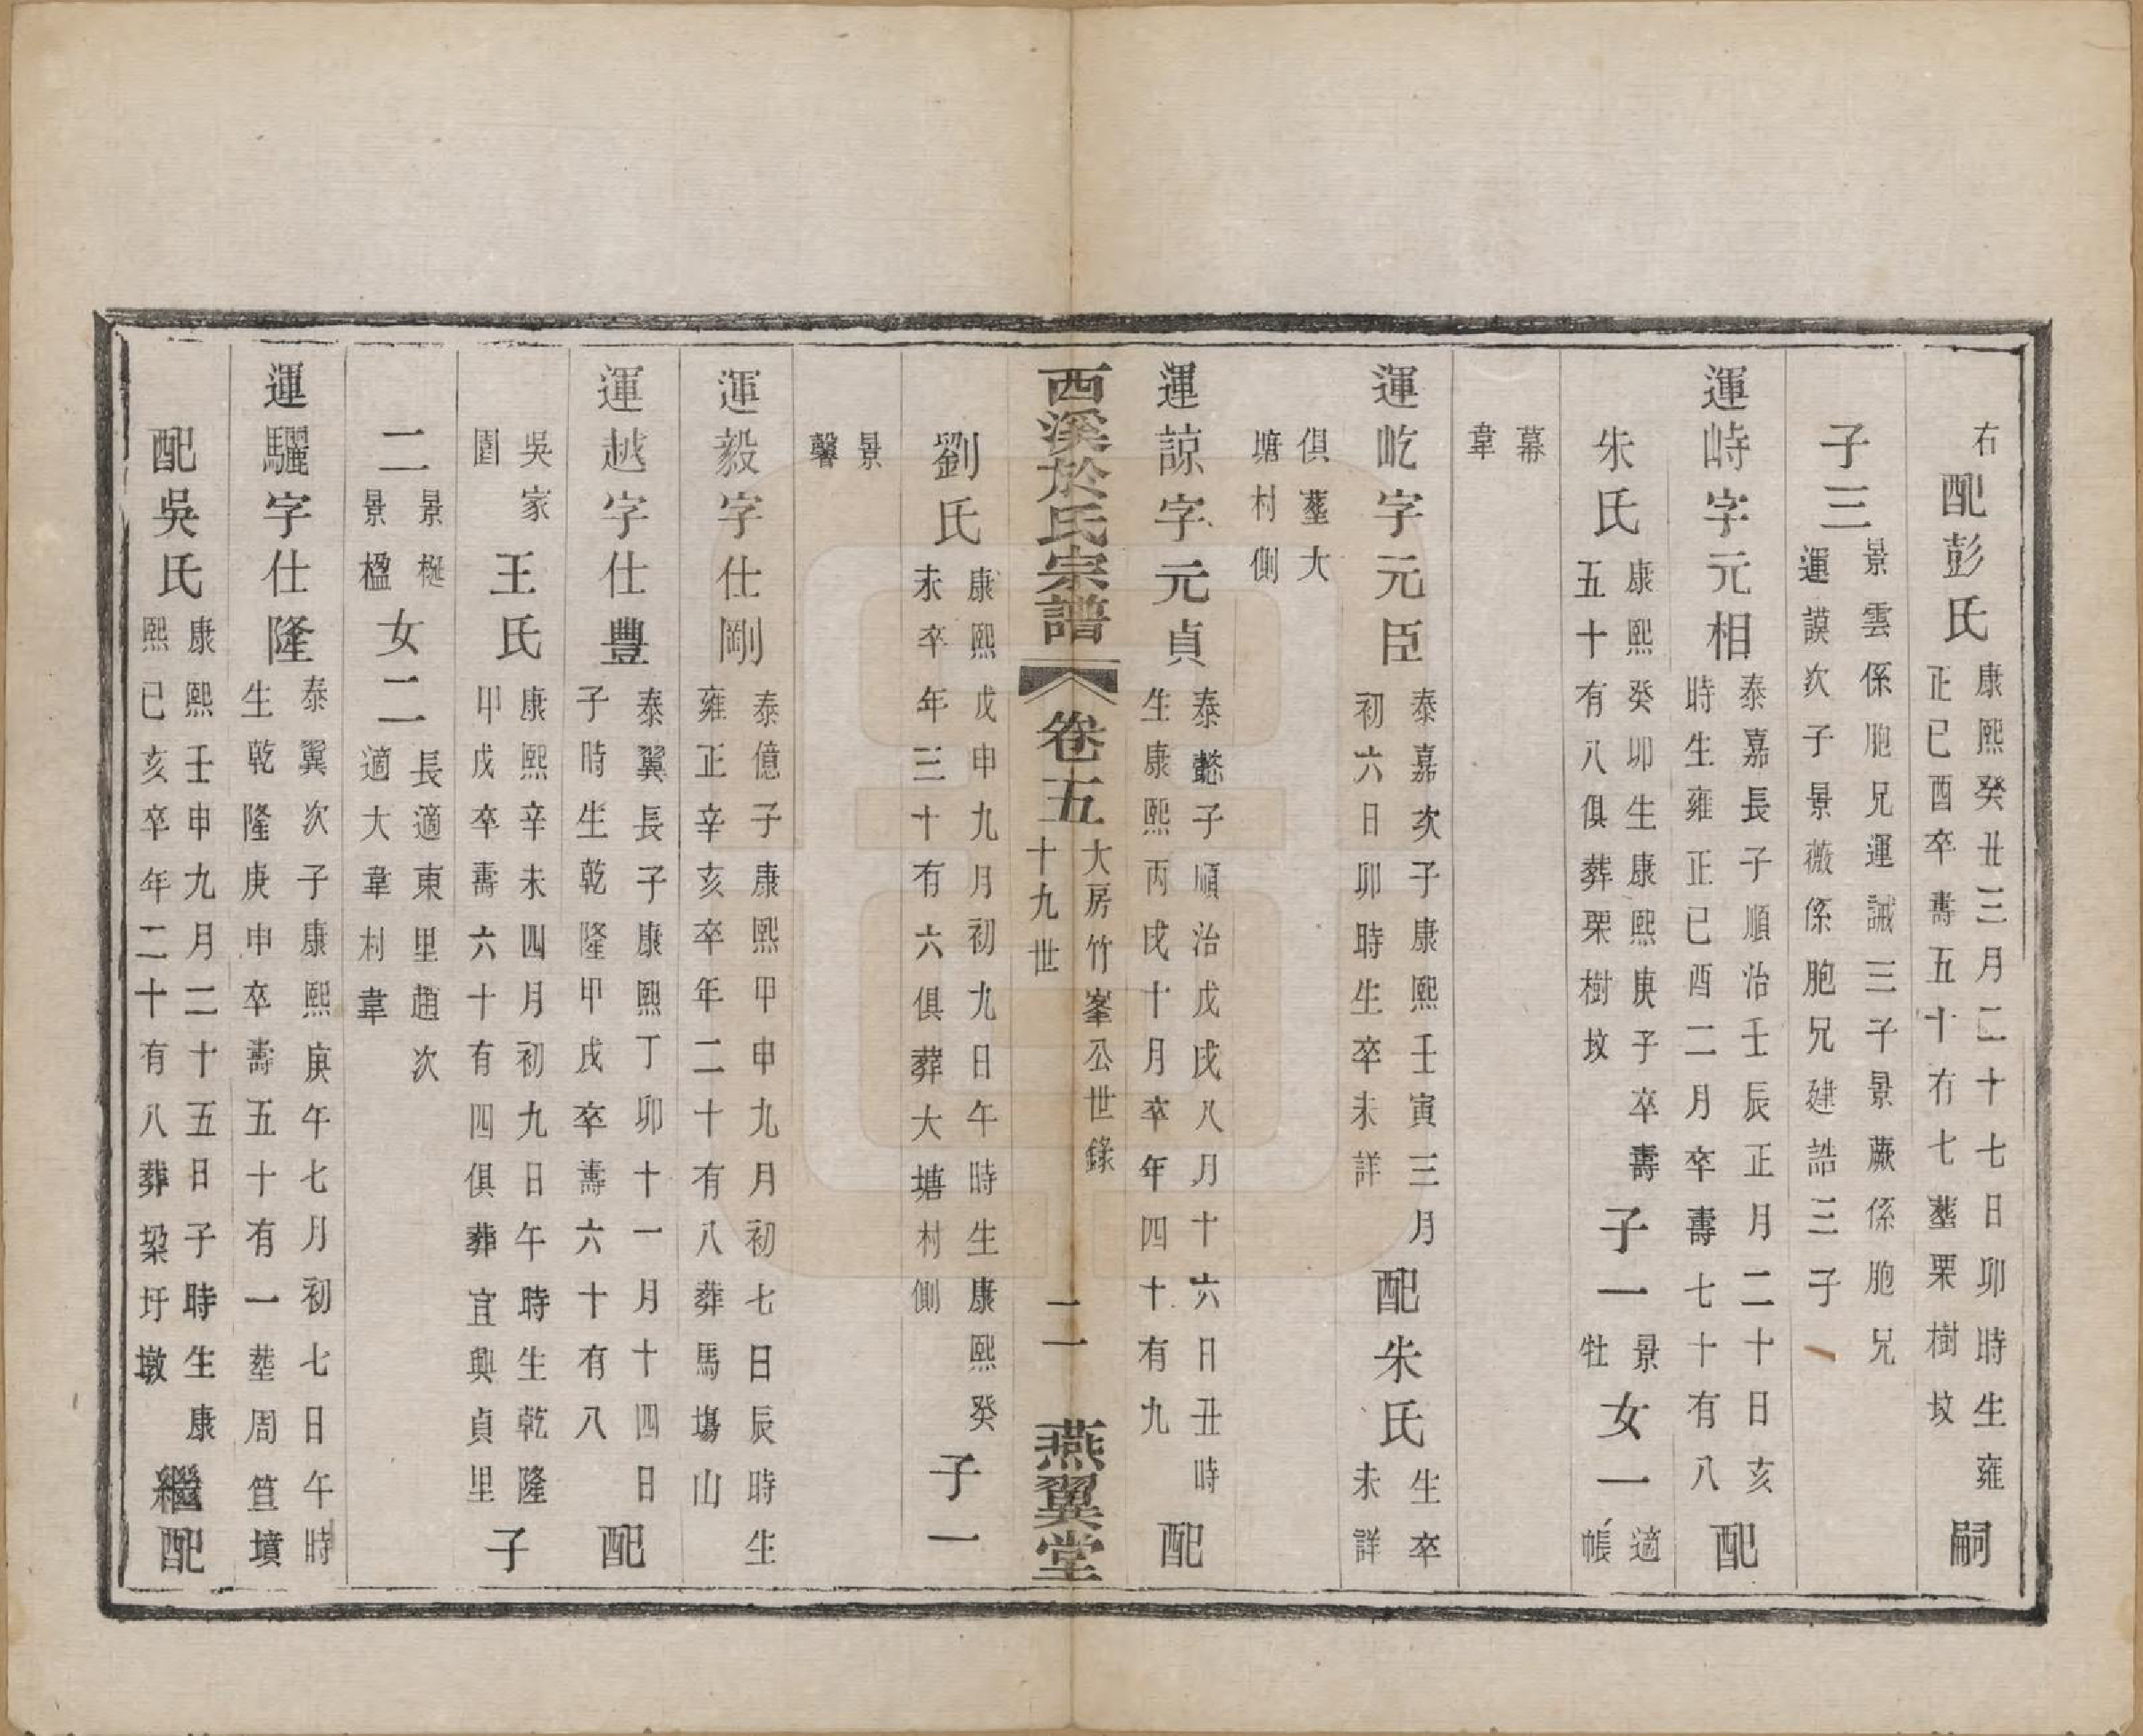 右 配彭氏 康熙癸丑三月二十七日卯時生雍正己酉卒壽五十有七塟栗樹坟 嗣
子三 景雲係胞兄運誠三子景蕨係胞兄運謨次子景薇係胞兄建誥三子
運峙字元相 泰嘉長子順治壬辰正月二十日亥時生雍正己酉二月卒壽七十有八 配
朱氏 康熙癸卯生康熙庚子卒壽五十有八俱葬栗樹坟 子一 景牡 女一 適帳
幕韋
運屹字元臣 泰嘉次子康熙壬寅三月初六日卯時生卒未詳 配朱氏 生卒未詳
俱塟大塘村側
運諒字元貞 泰懿子順治戊戌八月十六日丑時生康熙丙戌十月卒年四十有九 配
西溪於氏宗譜 卷五 大房竹峯公世錄 十九世 二一 燕翼堂
劉氏 康熙戊申九月初九日午時生康熙癸未卒年三十有六俱葬大塘村側 子一
景馨
運毅字仕剛 泰億子康熙甲申九月初七日辰時生雍正辛亥卒年二十有八葬馬塲山
運越字仕豐 泰翼長子康熙丁卯十一月十四日子時生乾隆甲戌卒壽六十有八 配
吳家圍 王氏 康熙辛未四月初九日午時生乾隆甲戌卒壽六十有四俱葬宜興貞里 子
二 景梴景楹 女二 長適東里趙次適大韋村韋
運驪字仕隆 泰翼次子康熙庚午七月初七日午時生乾隆庚申卒壽五十有一塟周笪墳
配吳氏 康熙壬申九月二十五日子時生康熙己亥卒年二十有八葬梁圩墩 繼配